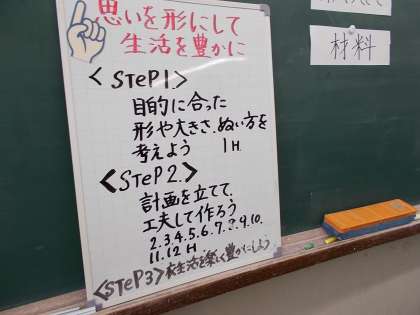 思いを形にして
生活を豊かに
<STEP1.>
目的に合った
形や大きさ、ぬい方を
考えよう 1H
<STEP2.>
計画を立てて、
工夫して作ろう
2.3.4.5.6.7.8.9.10.
11.12 H
<STEP3> 生活を楽しく豊かにしよう
材料